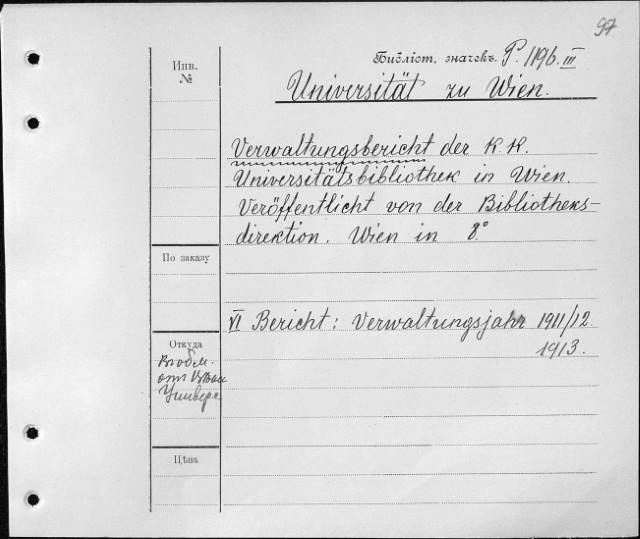 97
Библіот. значекъ. P. 1196. III
Инв. №
Universität zu Wien.
Verwaltungsbericht der K. K.
Universitätsbibliothek in Wien.
Veröffentlicht von der Bibliotheks-
direktion. Wien in 8.°
По заказу
VI Bericht: Verwaltungsjahr 1911/12.
1913.
Откуда
отъ
Универс
Цѣна